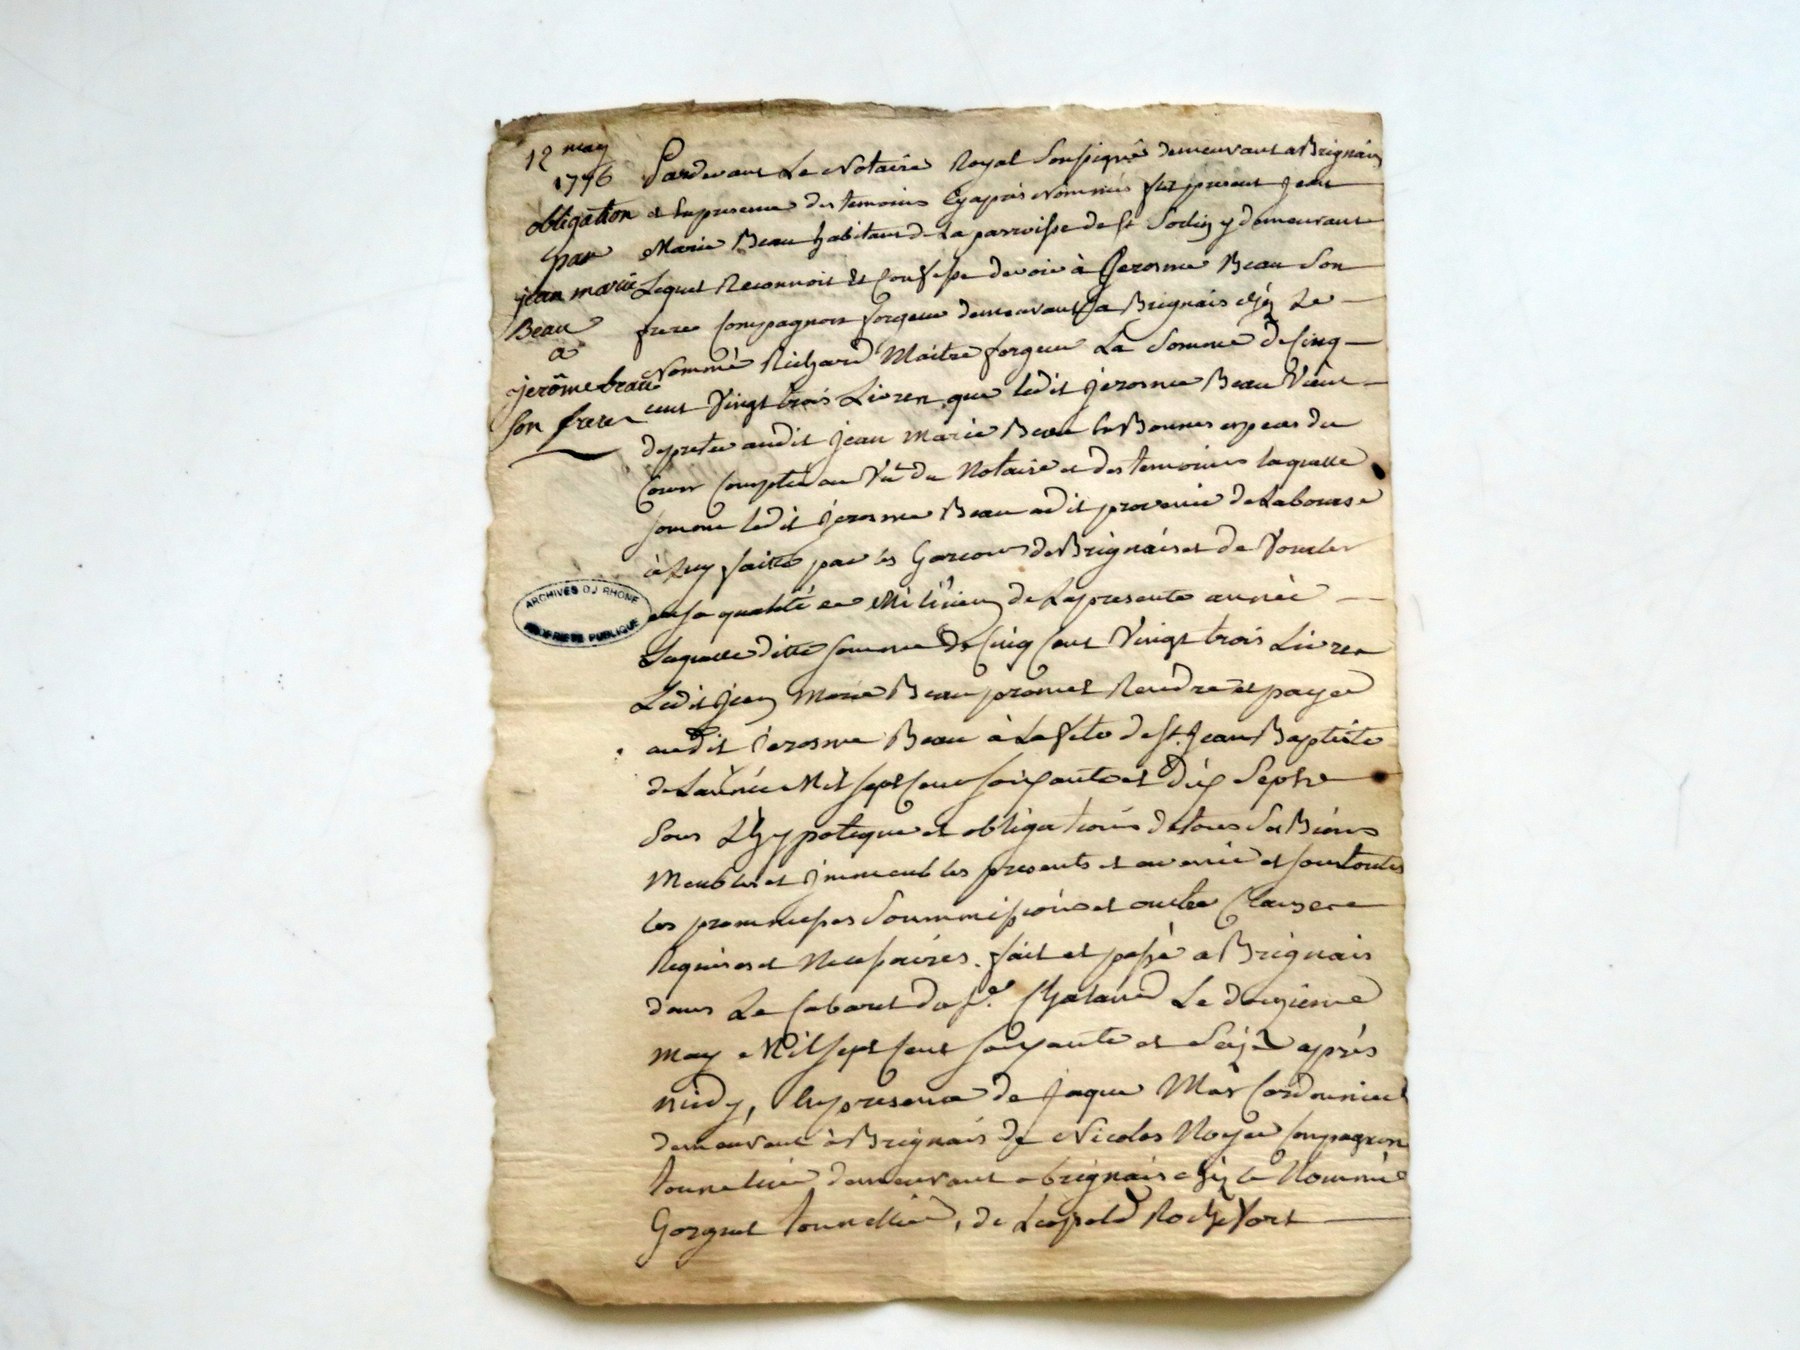 12 may
1776
obligation
par
jean marie
Beau
a
jerôme beau
son frere
ARCHIVES DU RHONE
PROPRIETE PUBLIQUE
Pardevant Le Notaire Royal Soussigné demeurant a Brignais
et En presence des temoins Cyaprés Nommés fut present Jean
Marie Beau habitant de La parroisse de St Sorlin y demeurant
Lequel Reconnoit et Confesse devoir à Jerosme Beau Son
frere Compagnon forgeur demeurant a Brignais chéz Le
Nommé Richard Maitre forgeur La Somme de Cinq
cent Vingt trois Livres que ledit Jerosme Beau Vient
de preter audit Jean Marie Beau En Bonnes especes du
Cours Comptée au Vu du Notaire et des temoins laquelle
somme ledit Jerosme Beau a dit provenir de La bourse
à Luy faitte par les Garcons de Brignais et de Vourles
en sa qualité de Milicien de La presente année
Laquelle ditte somme de Cinq Cent Vingt trois Livres
Ledit Jean Marie Beau promet Rendre et payer
audit Jerosme Beau à La fete de St. Jean Baptiste
de L'année Mil sept Cent soixante et dix Sept
Sous L'hypoteque et obligations de tous Ses Biens
Meubles et Immeubles presents et avenir et sous toutes
les promesses Soummissions et autres Clauses
Requises et Necessaires. fait et passé a Brignais
dans Le Cabaret du Sr. Chatard Le douzieme
may Mil sept Cent soixante et Seize aprés
midy, En presence de Jaque Mas Cordonnier
demeurant à Brignais de Nicolas Royer Compagnon
tounelier demeurant a brignais chéz le Nommé
Gorguet tounellier, de Leopold Rochefort